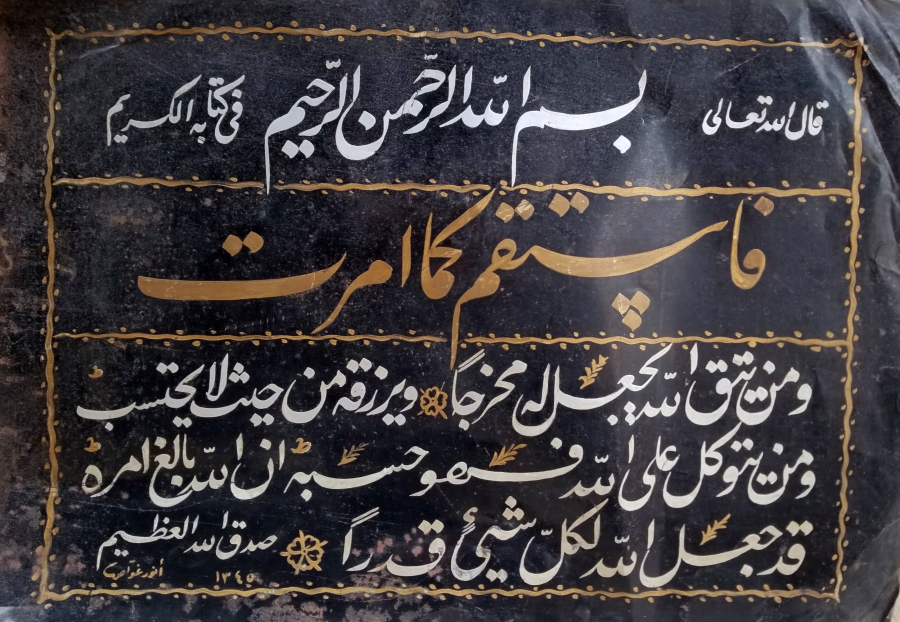 قال الله تعالى بسم الله الرحمن الرحيم في كتابه الكريم
فاستقم كما امرت
ومن يتق الله يجعل له مخرجاً ويرزقه من حيث لا يحتسب
ومن يتوكل على الله فهو حسبه ان الله بالغ امره
قد جعل الله لكلّ شيئ قدراً صدق الله العظيم
١٣٤٥